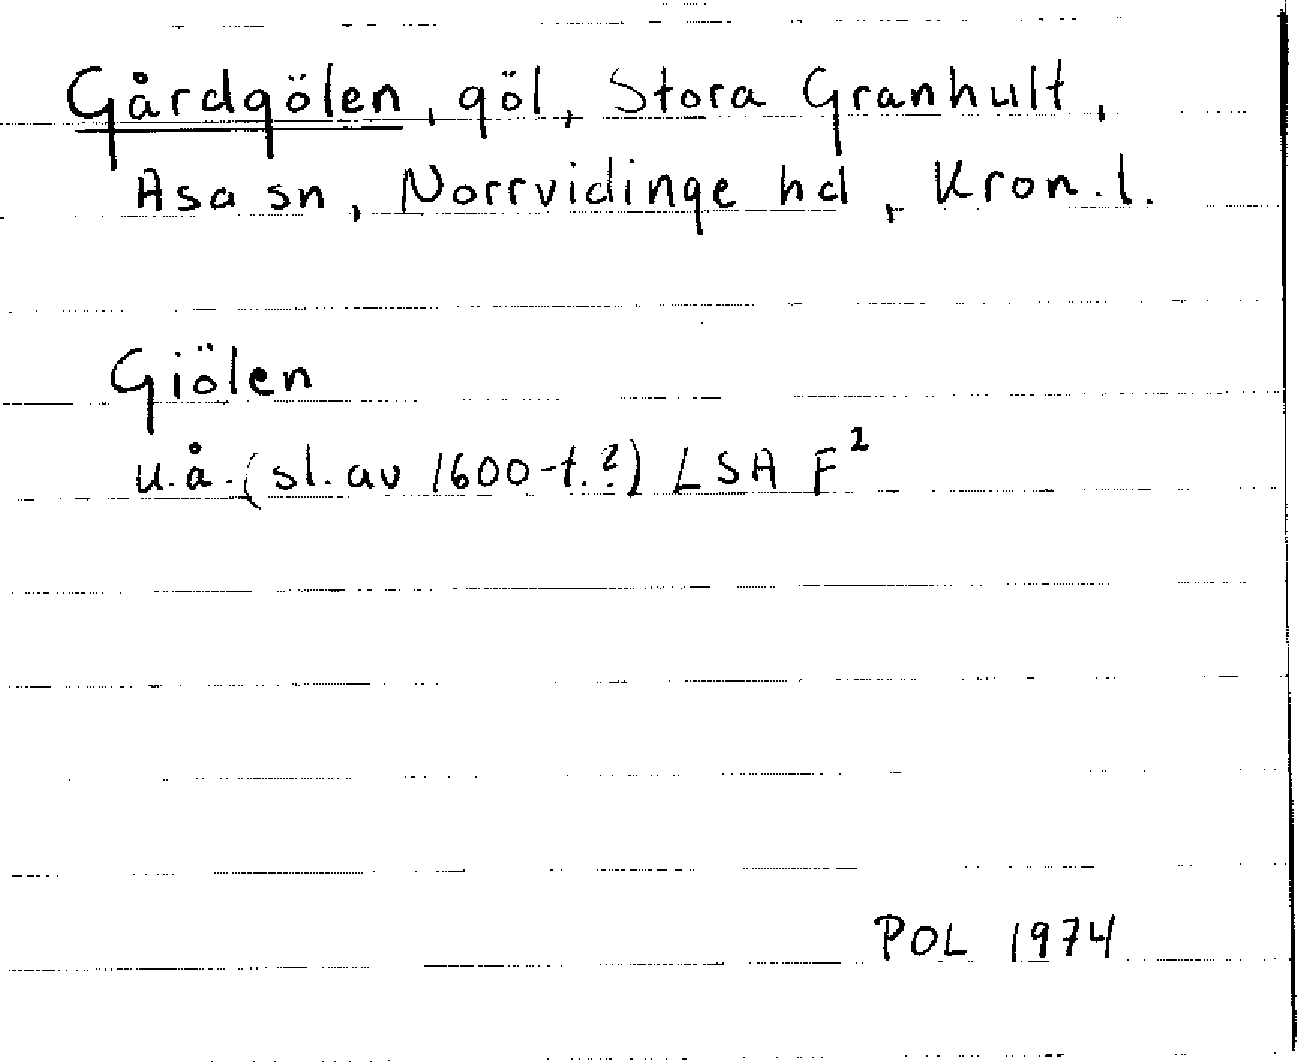 Gårdgölen, göl, Stora Granhult,
Asa sn, Norrvidinge hd, Kron. l.
Giölen
u.å. (sl. av 1600-t.?) LSA F²
POL 1974